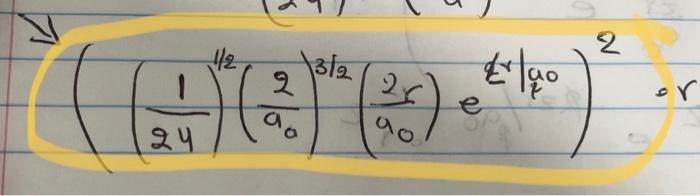 ( (1/24)^1/2 (2/a₀)^3/2 (2r/a₀) e^r/a₀ )^2 · r